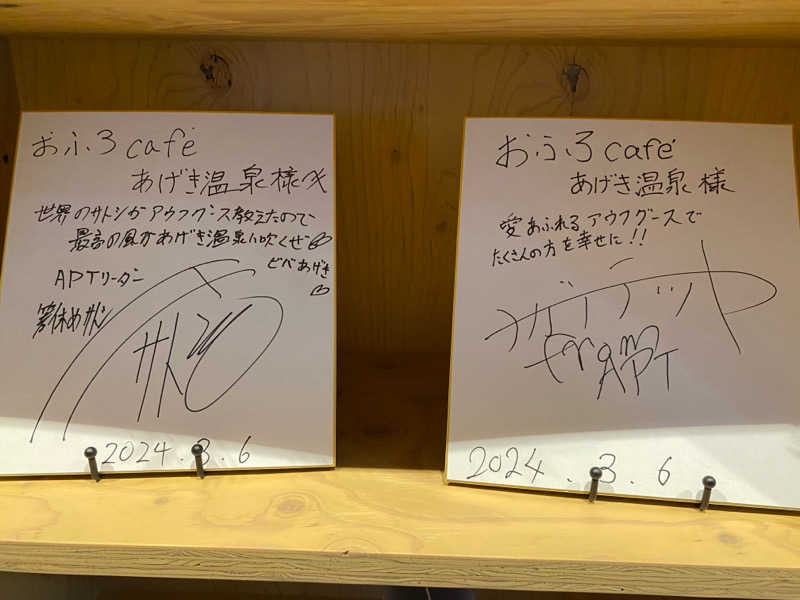 おふろcafé
あげき温泉様へ
世界のサトシがアウフグース教えたので
最高の風があげき温泉に吹くぜ♡
ビバあげき
♡
APTリーダー
箸休めサトシ
サトシ
2024.3.6
おふろcafé
あげき温泉様
愛あふれるアウフグースで
たくさんの方を幸せに!!
from
APT
2024.3.6